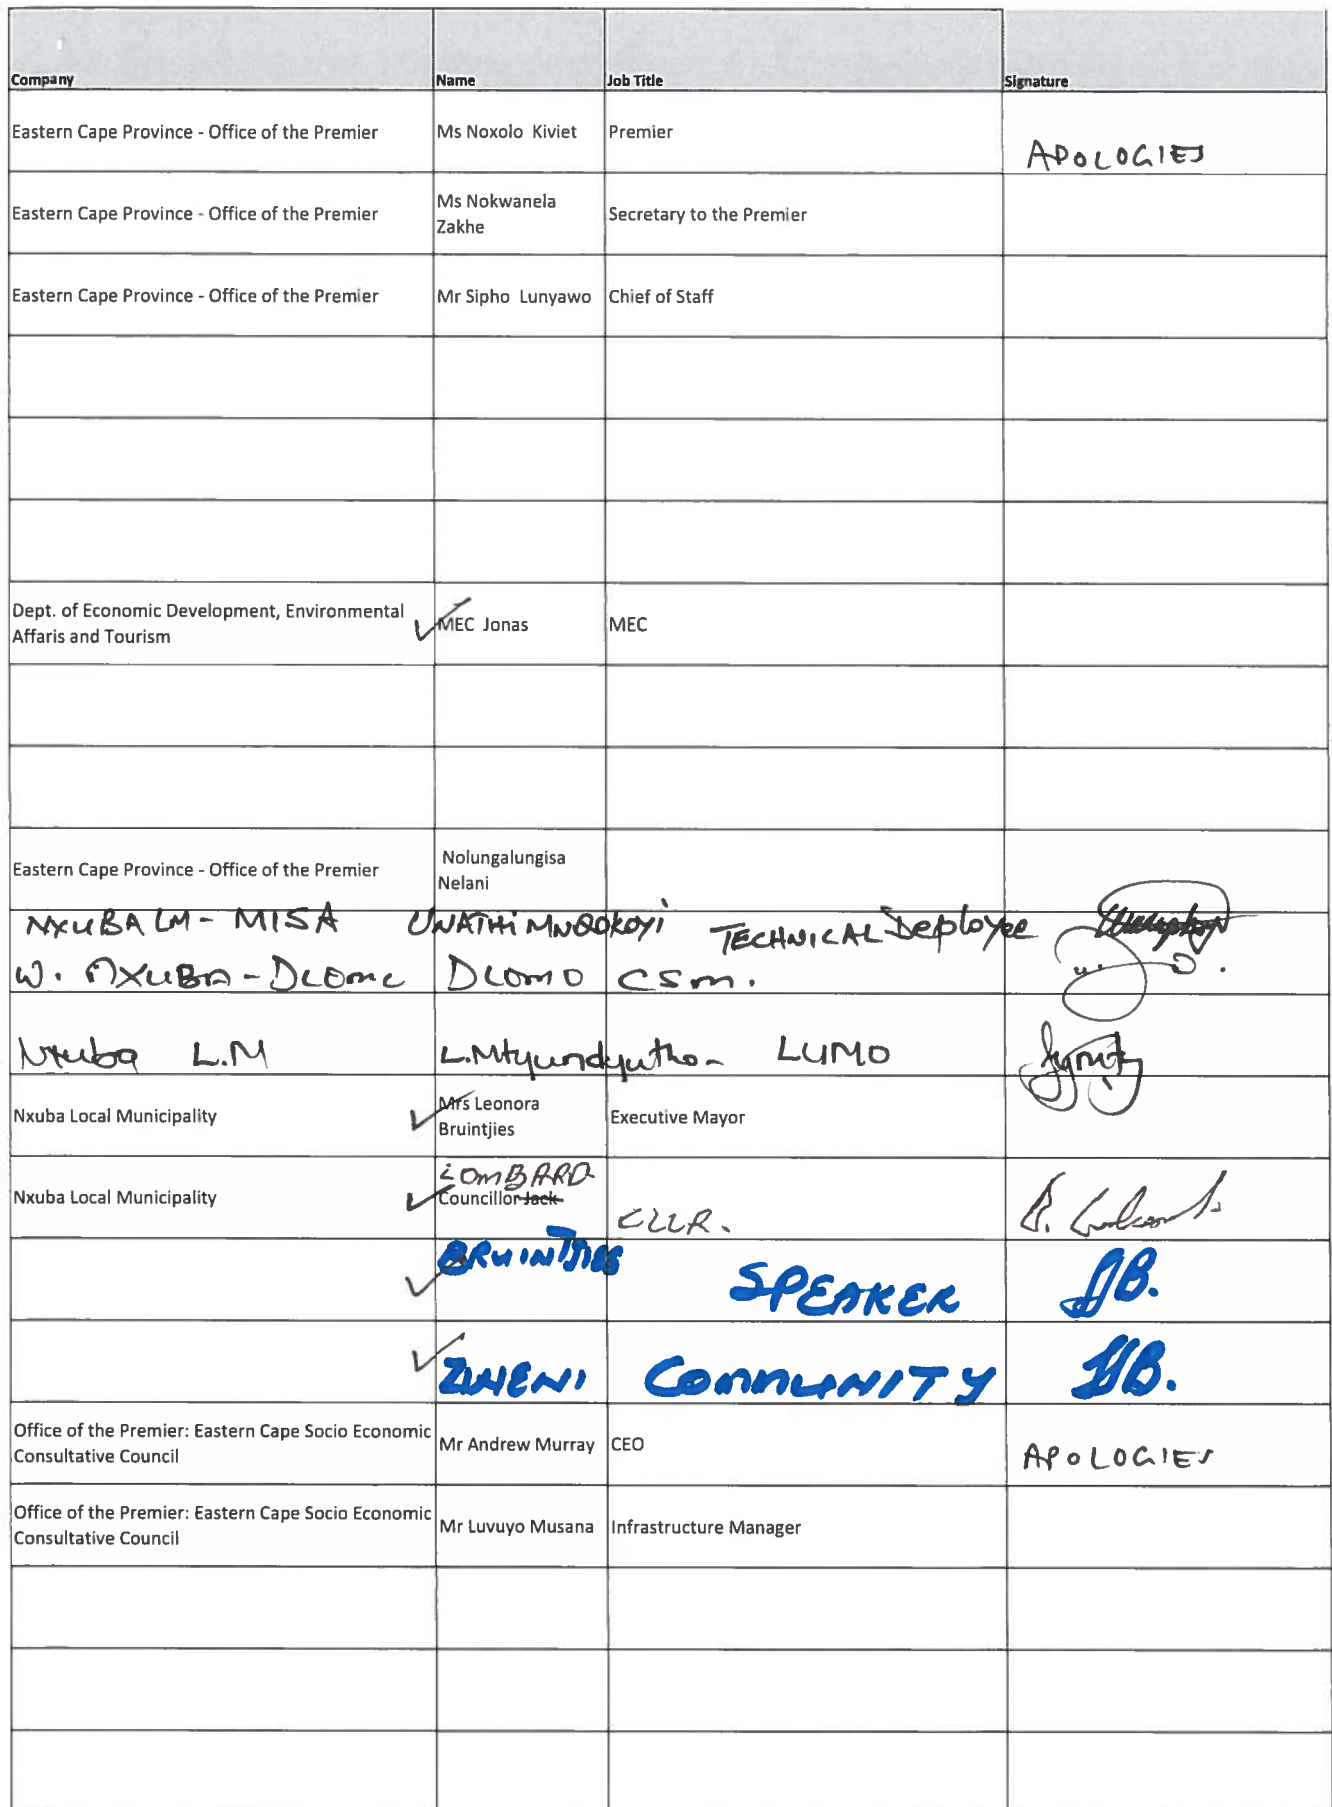 Company Name Job Title Signature
Eastern Cape Province - Office of the Premier Ms Noxolo Kiviet Premier APOLOGIES
Eastern Cape Province - Office of the Premier Ms Nokwanela Zakhe Secretary to the Premier
Eastern Cape Province - Office of the Premier Mr Sipho Lunyawo Chief of Staff
Dept. of Economic Development, Environmental
Affaris and Tourism MEC Jonas MEC
Eastern Cape Province - Office of the Premier Nolungalungisa Nelani
NXUBA LM - MISA UNATHI MNQOKOYI TECHNICAL Deployee
W. NXUBA - DLOMO CSM.
Nxuba L.M L. Mtyundyutho LUMO
Nxuba Local Municipality Mrs Leonora Bruintjies Executive Mayor
LOMBARD
Nxuba Local Municipality Councillor Jack CLLR.
BRUINTJIES SPEAKER JB.
ZWENI COMMUNITY
Office of the Premier: Eastern Cape Socio Economic
Consultative Council Mr Andrew Murray CEO APOLOGIES
Office of the Premier: Eastern Cape Socio Economic
Consultative Council Mr Luvuyo Musana Infrastructure Manager